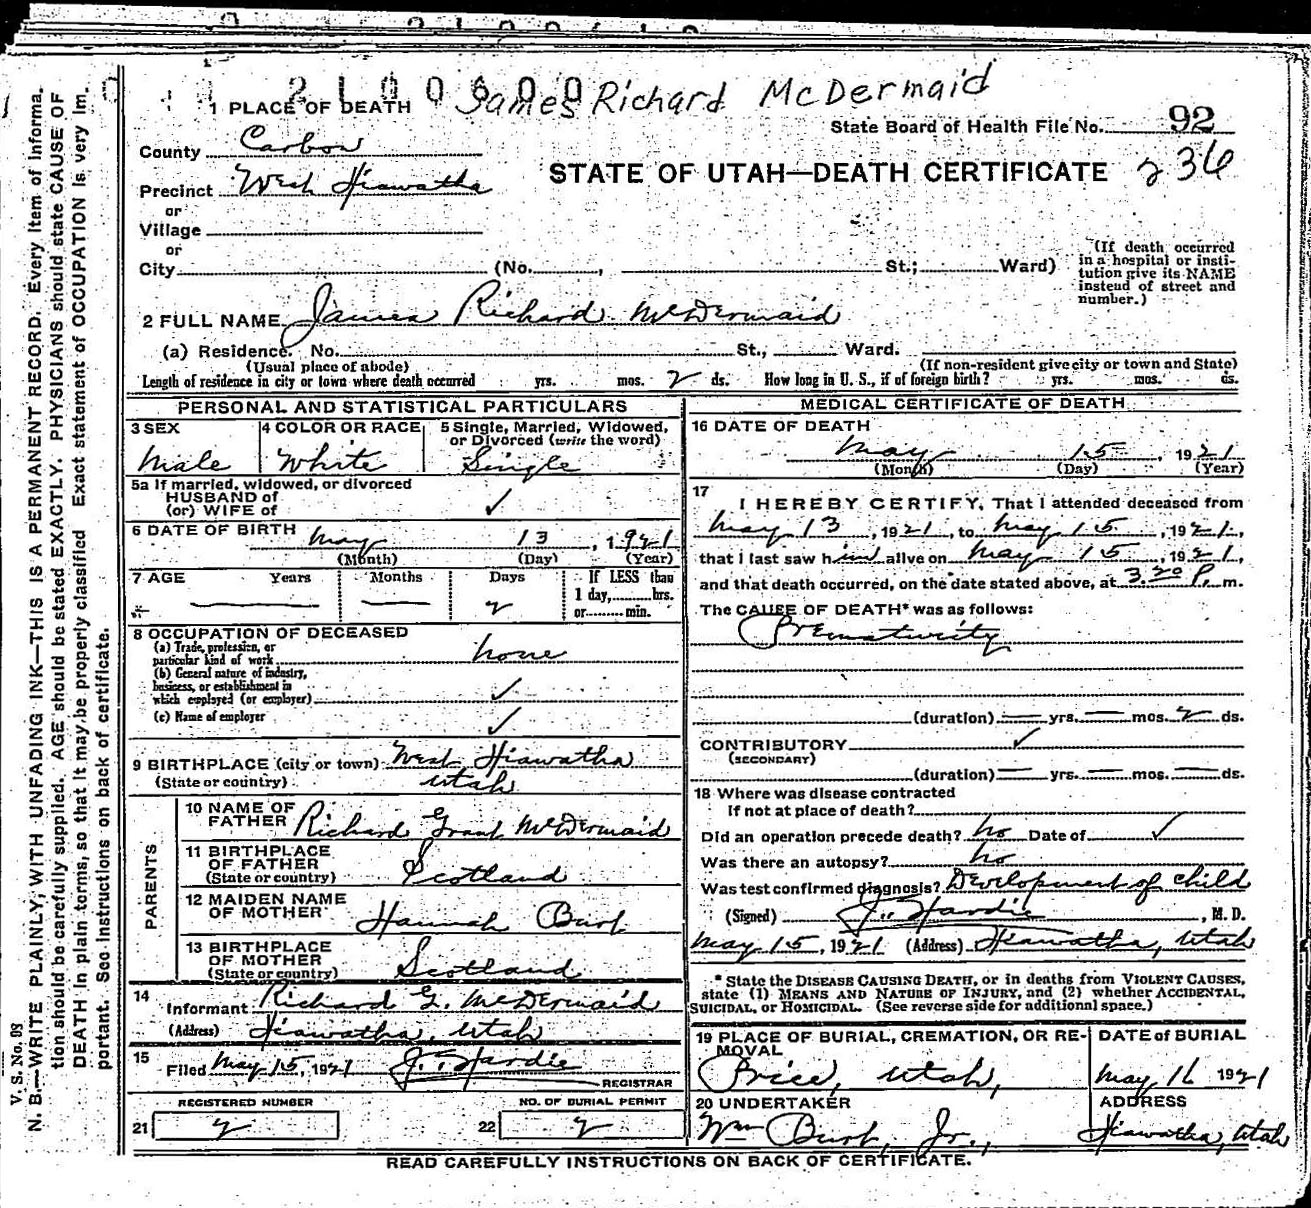 2 1 0 0 6 0 0
James Richard McDermaid
1 PLACE OF DEATH
State Board of Health File No. 92
County Carbon
STATE OF UTAH—DEATH CERTIFICATE 236
Precinct West Hiawatha
or
Village
or
City (No. , St.; Ward)
(If death occurred in a hospital or insti-
tution give its NAME
instead of street and
number.)
2 FULL NAME James Richard McDermaid
(a) Residence. No. St., Ward.
(Usual place of abode) (If non-resident give city or town and State)
Length of residence in city or town where death occurred yrs. mos. 2 ds. How long in U. S., if of foreign birth? yrs. mos. ds.
PERSONAL AND STATISTICAL PARTICULARS
3 SEX
Male
4 COLOR OR RACE
White
5 Single, Married, Widowed,
or Divorced (write the word)
Single
5a If married, widowed, or divorced
HUSBAND of
(or) WIFE of ✓
6 DATE OF BIRTH May 13, 1921
(Month) (Day) (Year)
7 AGE Years Months Days If LESS than
1 day, hrs.
— — 2 or min.
8 OCCUPATION OF DECEASED
(a) Trade, profession, or
particular kind of work none
(b) General nature of industry,
business, or establishment in
which employed (or employer) ✓
(c) Name of employer ✓
9 BIRTHPLACE (city or town) West Hiawatha
(State or country) Utah
PARENTS
10 NAME OF
FATHER Richard Grant McDermaid
11 BIRTHPLACE
OF FATHER
(State or country) Scotland
12 MAIDEN NAME
OF MOTHER Hannah Burt
13 BIRTHPLACE
OF MOTHER
(State or country) Scotland
14
Informant Richard G. McDermaid
(Address) Hiawatha, Utah
15
Filed May 15, 1921 J. Hardie
REGISTRAR
REGISTERED NUMBER
21 2
NO. OF BURIAL PERMIT
22 2
MEDICAL CERTIFICATE OF DEATH
16 DATE OF DEATH
May 15, 1921
(Month) (Day) (Year)
17
I HEREBY CERTIFY, That I attended deceased from
May 13, 1921, to May 15, 1921,
that I last saw him alive on May 15, 1921,
and that death occurred, on the date stated above, at 3.20 P. m.
The CAUSE OF DEATH* was as follows:
Prematurity
(duration) — yrs. — mos. 2 ds.
CONTRIBUTORY ✓
(SECONDARY)
(duration) — yrs. — mos. — ds.
18 Where was disease contracted
If not at place of death?
Did an operation precede death? no Date of ✓
Was there an autopsy? no
Was test confirmed diagnosis? Development of child
(Signed) J. Hardie, M. D.
May 15, 1921 (Address) Hiawatha, Utah
* State the DISEASE CAUSING DEATH, or in deaths from VIOLENT CAUSES,
state (1) MEANS AND NATURE OF INJURY, and (2) whether ACCIDENTAL,
SUICIDAL, or HOMICIDAL. (See reverse side for additional space.)
19 PLACE OF BURIAL, CREMATION, OR RE-
MOVAL
Price, Utah,
DATE of BURIAL
May 16 1921
20 UNDERTAKER
Wm Burt, Jr.,
ADDRESS
Hiawatha, Utah
READ CAREFULLY INSTRUCTIONS ON BACK OF CERTIFICATE.
V. S. No. 98
N. B.—WRITE PLAINLY, WITH UNFADING INK—THIS IS A PERMANENT RECORD. Every item of informa-
tion should be carefully supplied. AGE should be stated EXACTLY. PHYSICIANS should state CAUSE OF
DEATH in plain terms, so that it may be properly classified Exact statement of OCCUPATION is very im-
portant. See instructions on back of certificate.